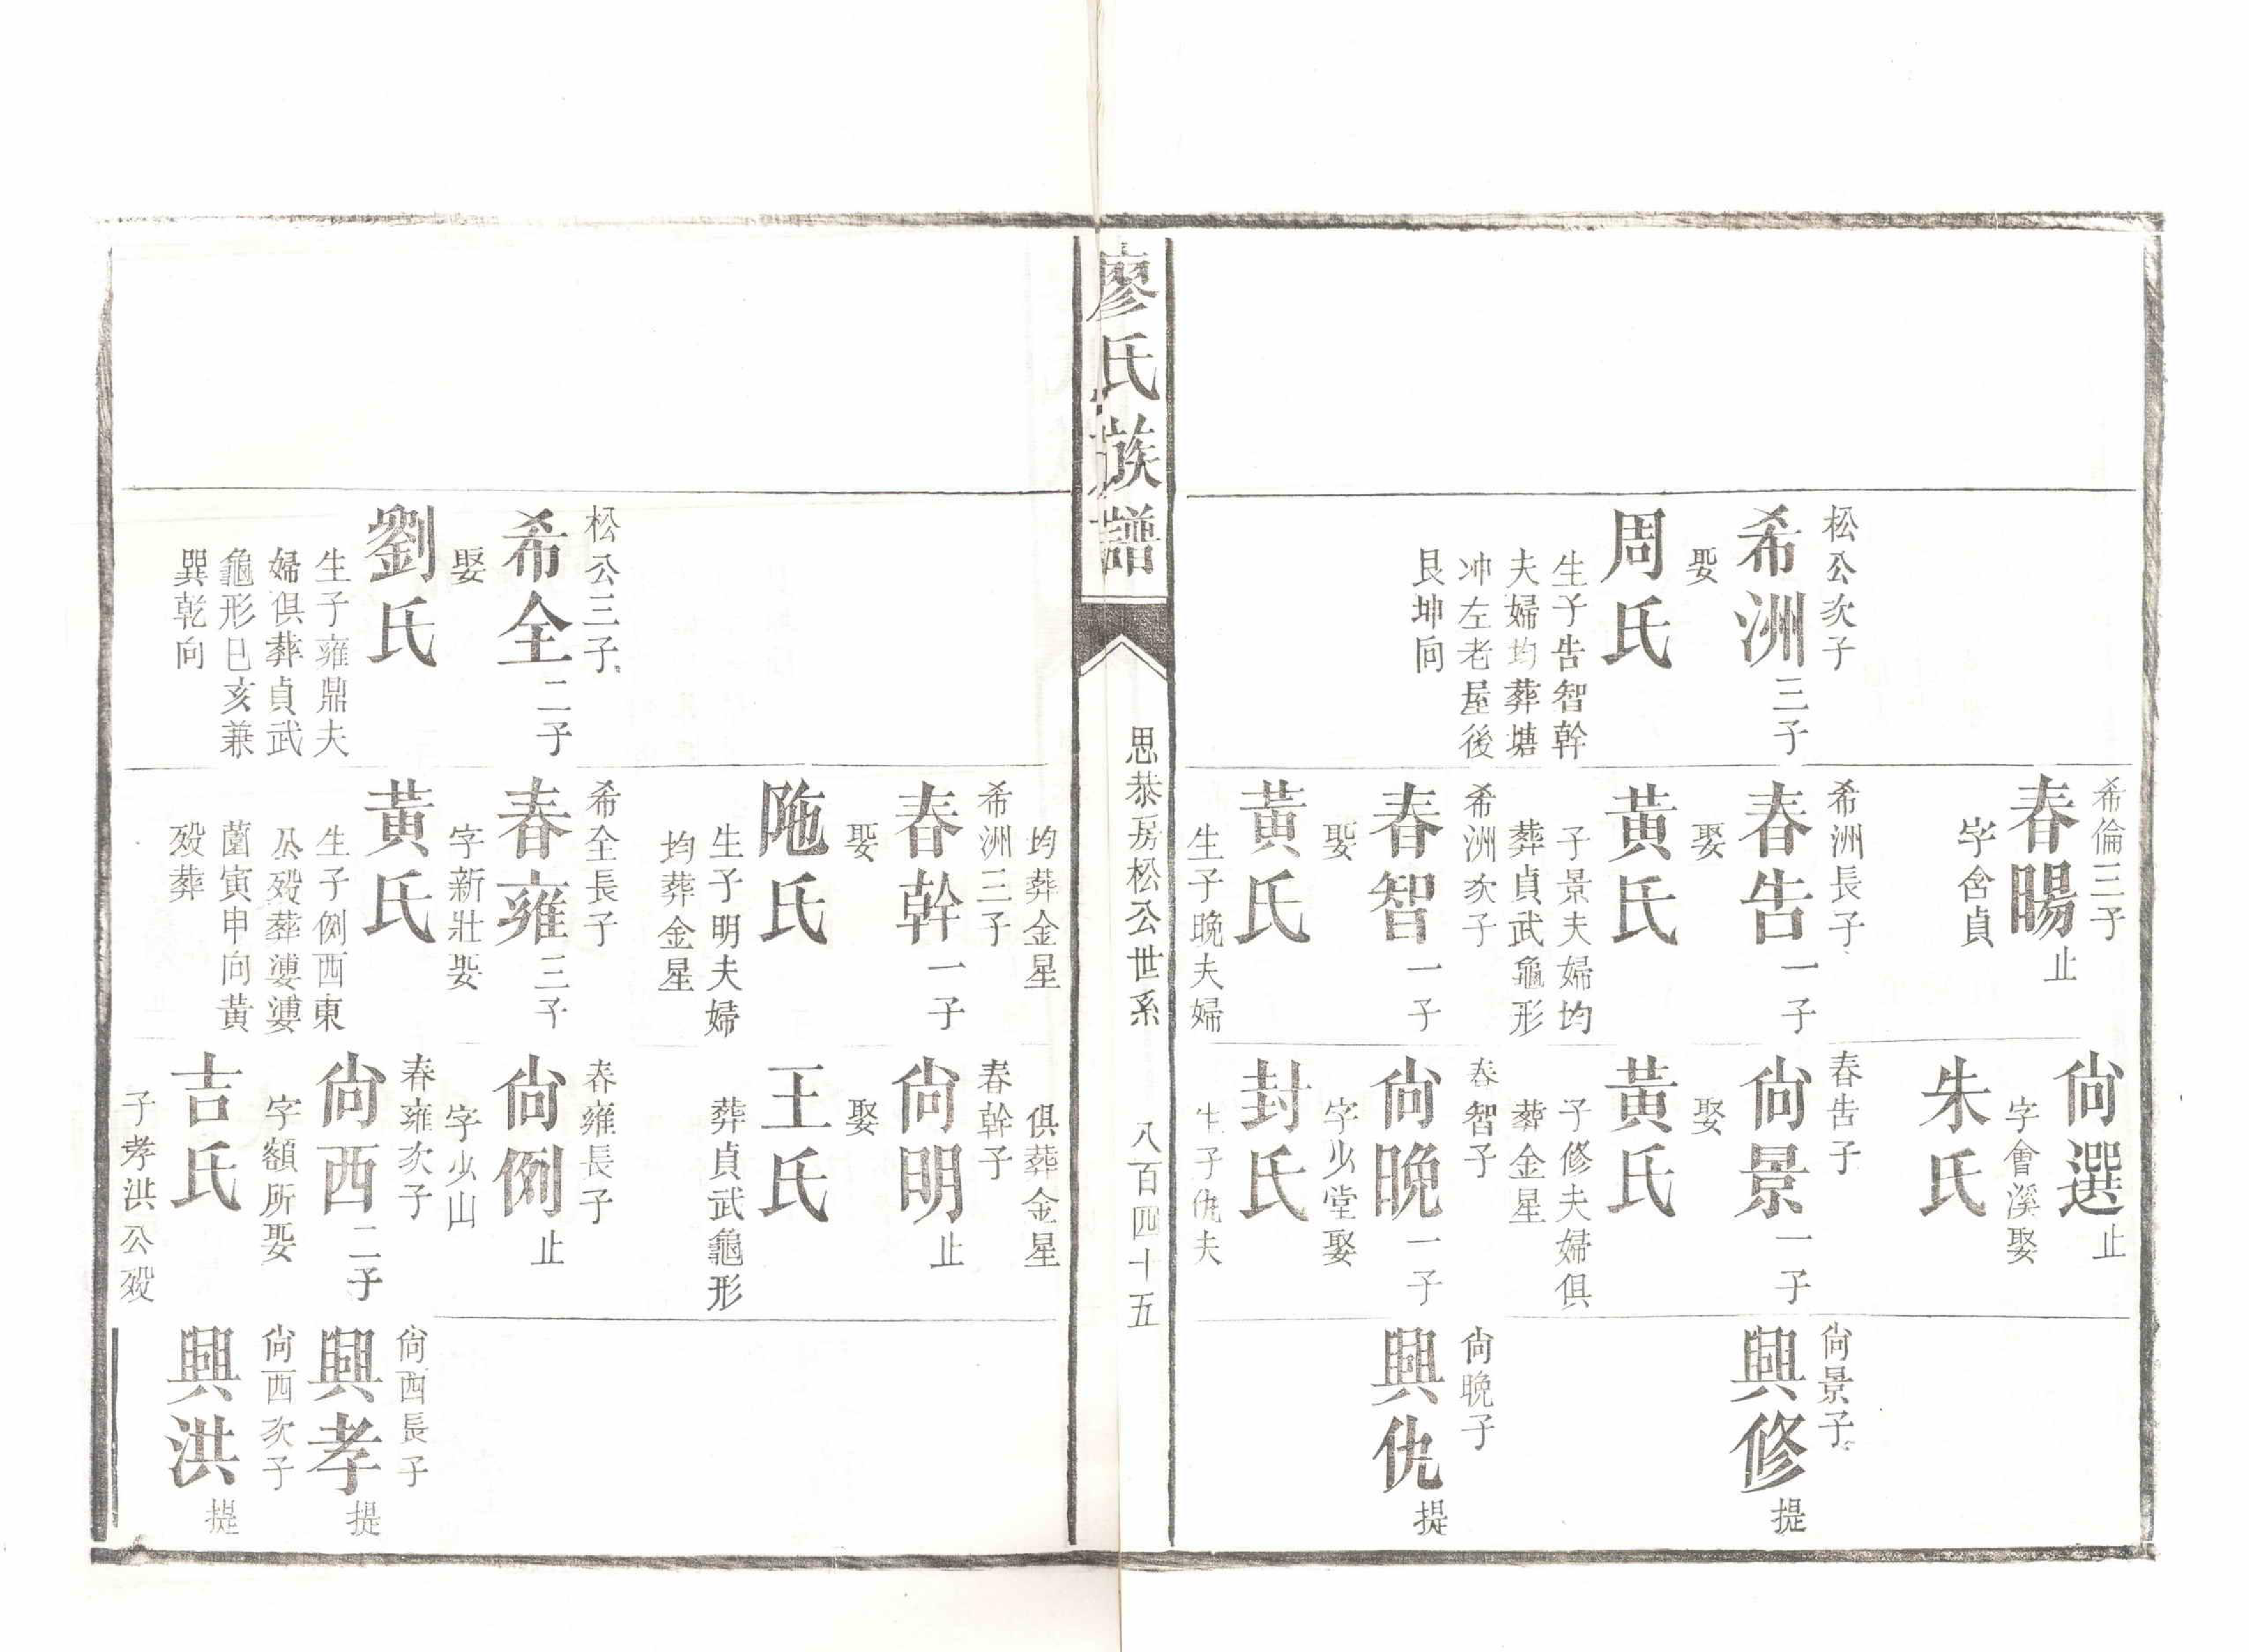 松公次子
希洲三子
娶
周氏
生子告智幹
夫婦均葬塘
冲左老屋後
艮坤向
希倫三子
春暘止
字含貞
希洲長子
春告一子
娶
黃氏
子景夫婦均
葬貞武龜形
希洲次子
春智一子
娶
黃氏
生子晚夫婦
尙選止
字會溪娶
朱氏
春告子
尙景一子
娶
黃氏
子修夫婦俱
葬金星
春智子
尙晚一子
字少堂娶
封氏
生子仇夫
尙景子
興修提
尙晚子
興仇提
廖氏族譜
思恭房松公世系
八百四十五
松公三子
希全二子
娶
劉氏
生子雍鼎夫
婦俱葬貞武
龜形巳亥兼
巽乾向
均葬金星
希洲三子
春幹一子
娶
陁氏
生子明夫婦
均葬金星
希全長子
春雍三子
字新壯娶
黃氏
生子例西東
公歿葬婆婆
薗寅申向黃
歿葬
俱葬金星
春幹子
尙明止
娶
王氏
葬貞武龜形
春雍長子
尙例止
字少山
春雍次子
尙西二子
字額所娶
吉氏
子孝洪公歿
尙西長子
興孝提
尙西次子
興洪提